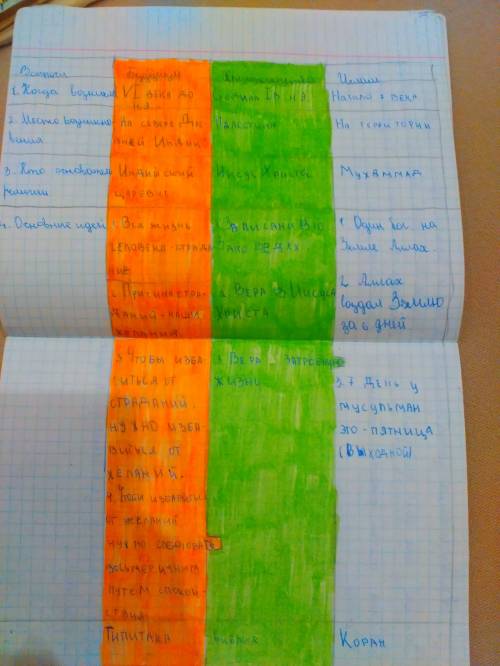 Вопросы Буддизм Христианство Ислам
1. Когда возникла VI века до I в н.э. Начало 7 века
н.э.
2. Место возникно- На севере Палестина На территории
вения. ней Индии
3. Кто основатель Индийский Иисус Христос Мухаммад
религии царевич
4. Основные идеи 1. Вся жизнь 1 Один бог на
человека-страда- Земле Аллах.
ние
2. Причина стра- 2. Вера в Иисуса 2 Аллах
даний-наши Христа создал Землю
желания. за 6 дней
3. Чтобы изба- 3. Вера в загробную 3. 7 День у
виться от жизнь мусульман
страданий, это-пятница
нужно изба- (выходной)
виться от
желаний.
4. Чтобы избавиться
от желаний
нужно следовать
восьмеричным
путем спокой-
ствия
Типитака Библия Коран